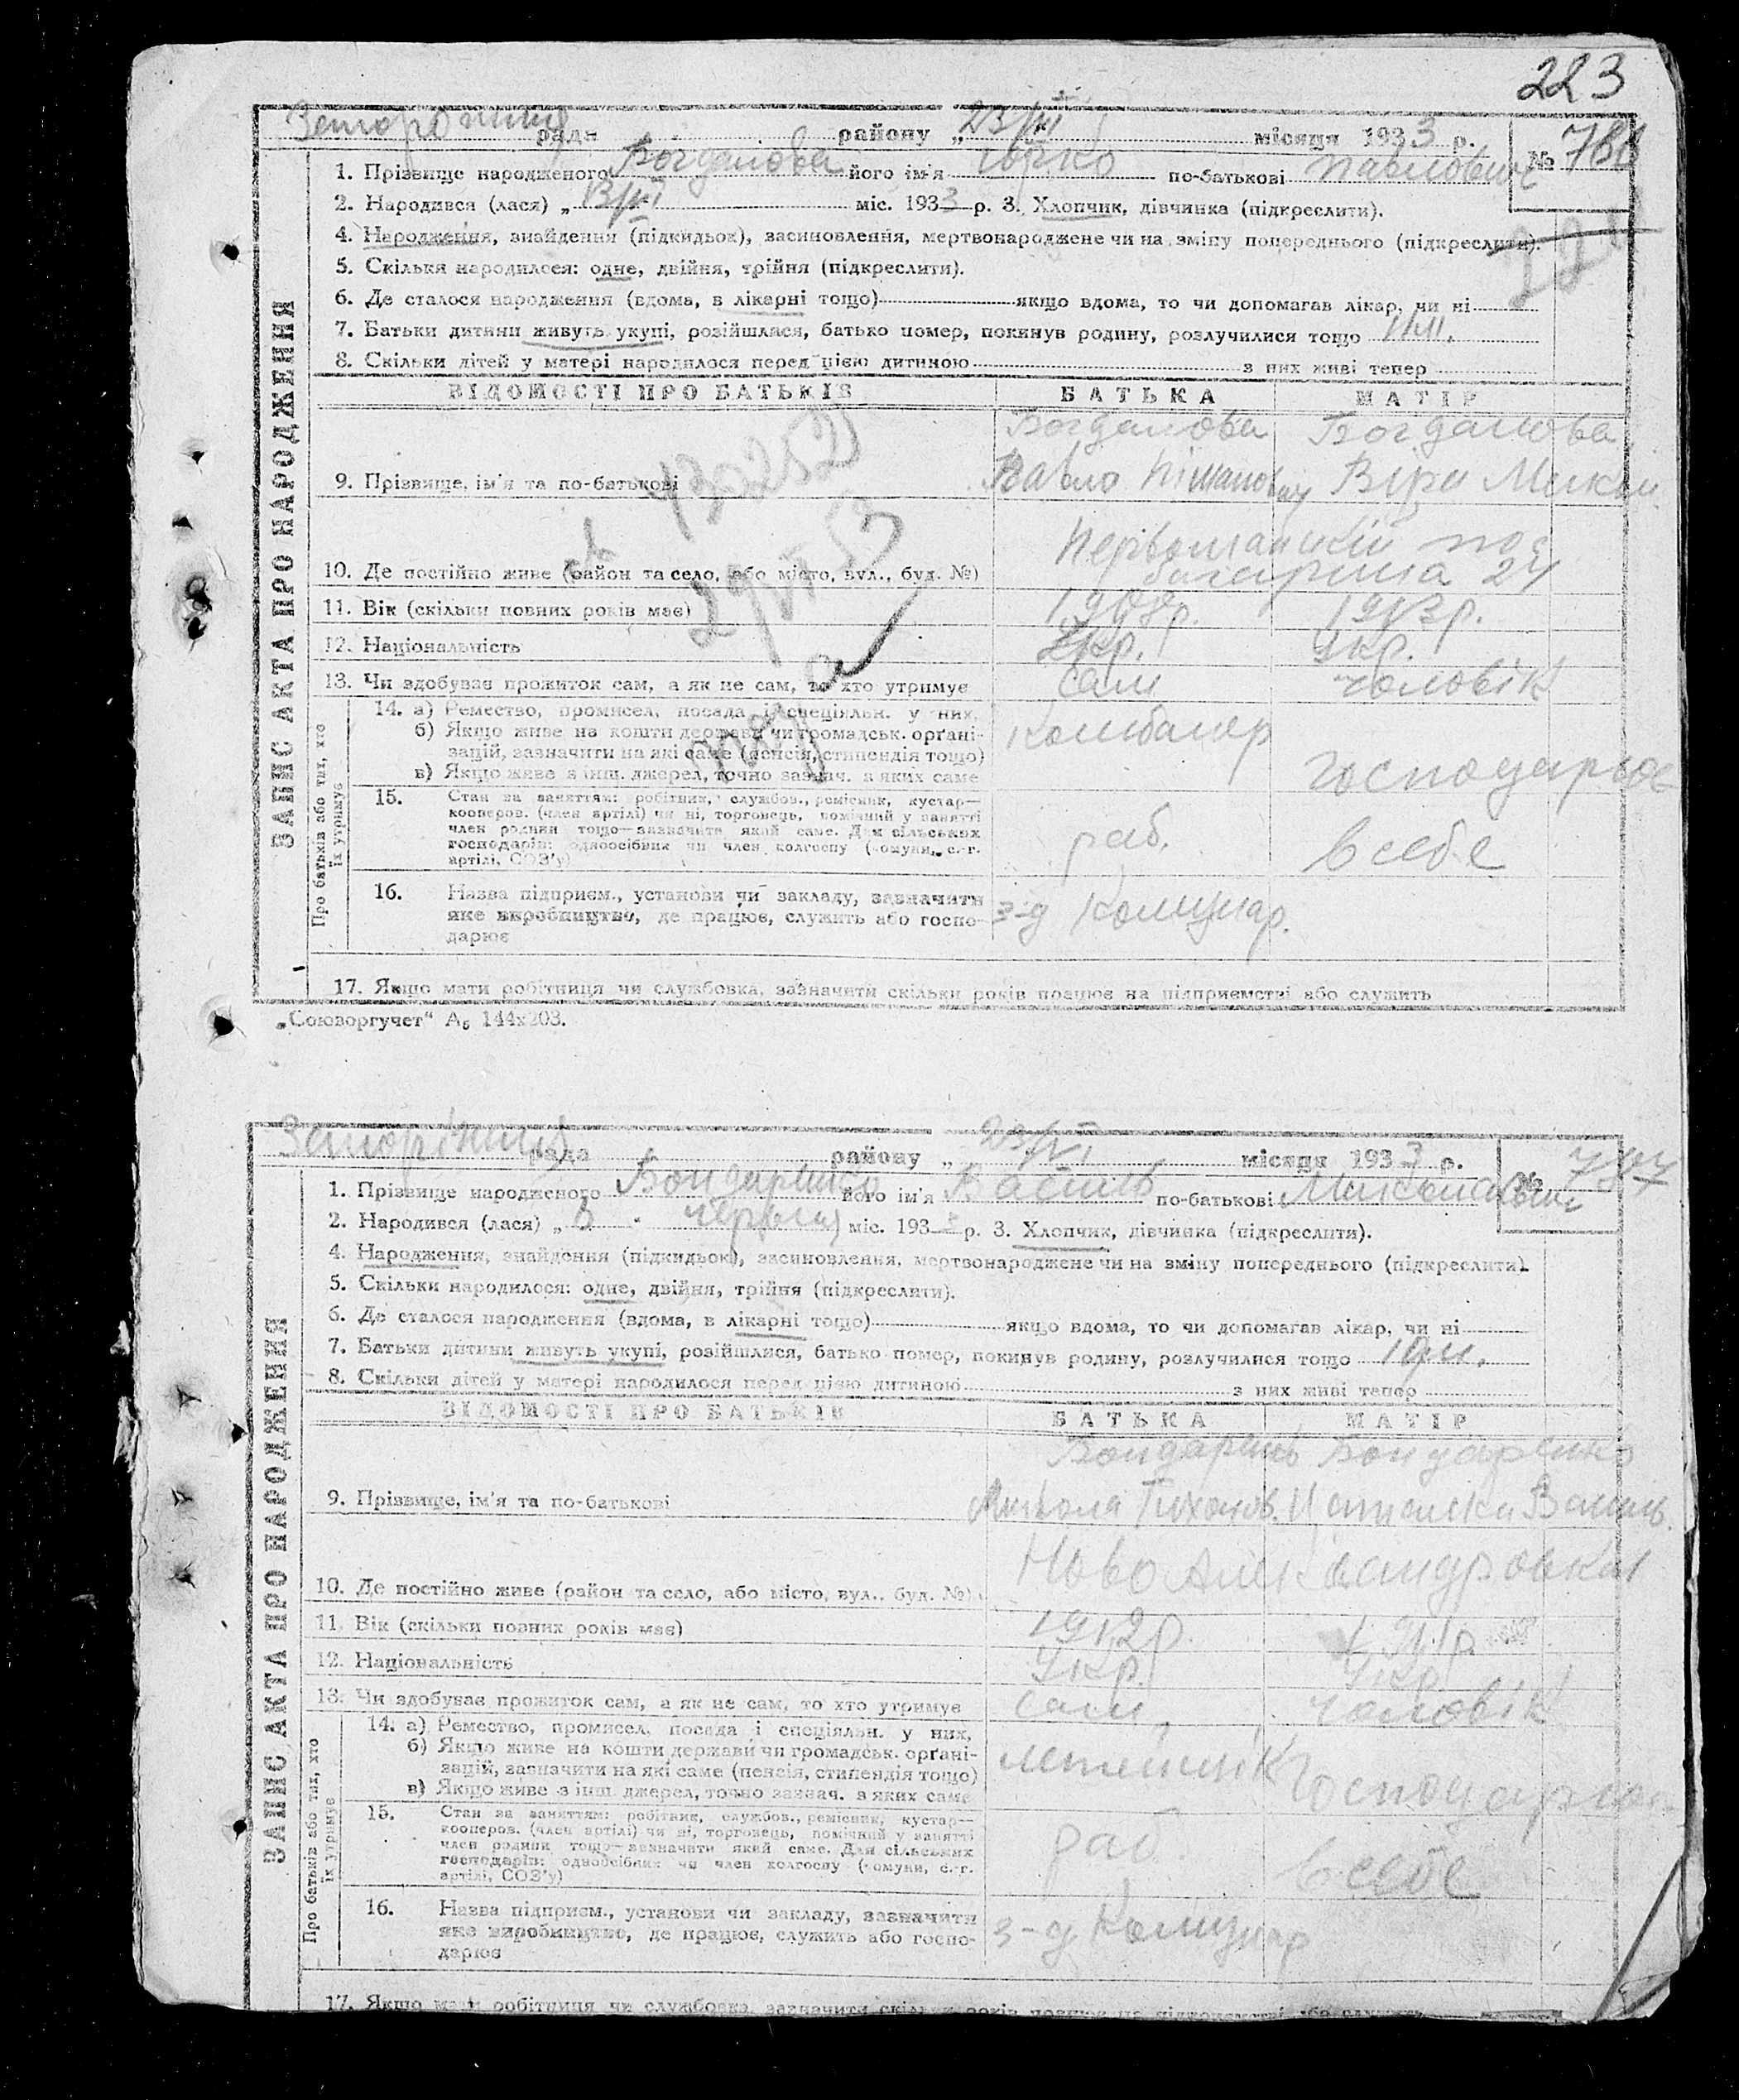 223
рада району „ 23/VI місяця 1933 р.
№
1. Прізвище народженого Богданова його ім'я Юрко по-батькові Павлович
2. Народився (лася) „ міс. 1933 р. 3. Хлопчик, дівчинка (підкреслити).
4. Народження, знайдення (підкидьок), засиновлення, мертвонароджене чи на зміну попереднього (підкреслити).
5. Скільки народилося: одне, двійня, трійня (підкреслити).
6. Де сталося народження (вдома, в лікарні тощо) якщо вдома, то чи допомагав лікар, чи ні
7. Батьки дитини живуть укупі, розійшлися, батько помер, покинув родину, розлучилися тощо
8. Скільки дітей у матері народилося перед цією дитиною з них живі тепер
ВІДОМОСТІ ПРО БАТЬКІВ БАТЬКА МАТІР
Богданова Богданова
9. Прізвище, ім'я та по-батькові Павло Віра Микол.
10. Де постійно живе (район та село, або місто, вул., буд. №) 24
11. Вік (скільки повних років має) 1908р. 1913р.
12. Національність Укр. Укр.
13. Чи здобуває прожиток сам, а як не сам, то хто утримує сам чоловік
ЗАПИС АКТА ПРО НАРОДЖЕННЯ
Про батьків або тих, хто їх утримує
14. а) Ремество, промисел, посада і спеціяльн. у них,
б) Якщо живе на кошти держави чи громадськ. орґані-
зацій, зазначити на які саме (пенсія, стипендія тощо)
в) Якщо живе з інш. джерел, точно зазнач. з яких саме
господарює
15. Стан за заняттям: робітник, службов., ремісник, кустар—
кооперов. (член артілі) чи ні, торговець, помічний у занятті
член родини тощо—зазначити який саме. Для сільських
господарів: одноосібник чи член колгоспу (комуни, с.-г.
артілі, СОЗ'у)
раб. в себе
16. Назва підприєм., установи чи закладу, зазначити
яке виробництво, де працює, служить або госпо-
дарює
з-д Комунар.
17. Якщо мати робітниця чи службовка, зазначити скільки років працює на підприємстві або служить
„Союзоргучет" А₆ 144х203.
рада району „ 23/VI місяця 1933 р.
№ 787
1. Прізвище народженого Бондаренко його ім'я Василь по-батькові Миколаєвич
2. Народився (лася) „ червня міс. 193 р. 3. Хлопчик, дівчинка (підкреслити).
4. Народження, знайдення (підкидьок), засиновлення, мертвонароджене чи на зміну попереднього (підкреслити).
5. Скільки народилося: одне, двійня, трійня (підкреслити).
6. Де сталося народження (вдома, в лікарні тощо) якщо вдома, то чи допомагав лікар, чи ні
7. Батьки дитини живуть укупі, розійшлися, батько помер, покинув родину, розлучилися тощо
8. Скільки дітей у матері народилося перед цією дитиною з них живі тепер
ВІДОМОСТІ ПРО БАТЬКІВ БАТЬКА МАТІР
Бондаренко
9. Прізвище, ім'я та по-батькові Микола Тихонов. Василь.
10. Де постійно живе (район та село, або місто, вул., буд. №) Ново Александровка
11. Вік (скільки повних років має) 1912р. 1911р.
12. Національність Укр. Укр.
13. Чи здобуває прожиток сам, а як не сам, то хто утримує сам чоловік
ЗАПИС АКТА ПРО НАРОДЖЕННЯ
Про батьків або тих, хто їх утримує
14. а) Ремество, промисел, посада і спеціяльн. у них,
б) Якщо живе на кошти держави чи громадськ. орґані-
зацій, зазначити на які саме (пенсія, стипендія тощо)
в) Якщо живе з інш. джерел, точно зазнач. з яких саме
15. Стан за заняттям: робітник, службов., ремісник, кустар—
кооперов. (член артілі) чи ні, торговець, помічний у занятті
член родини тощо—зазначити який саме. Для сільських
господарів: одноосібник чи член колгоспу (комуни, с.-г.
артілі, СОЗ'у)
раб. в себе
16. Назва підприєм., установи чи закладу, зазначити
яке виробництво, де працює, служить або госпо-
дарює
з-д Комунар
17. Якщо мати робітниця чи службовка, зазначити скільки років працює на підприємстві або служить